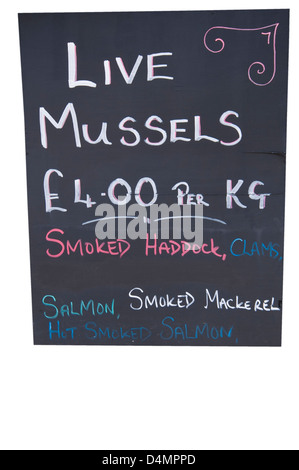 7
LIVE
MUSSELS
£4.00 PER KG
SMOKED HADDOCK, CLAMS,
SALMON, SMOKED MACKEREL
HOT SMOKED SALMON,
alamy
Image ID: D4MPPD
www.alamy.com